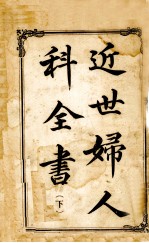 近世婦人
科全書(下)